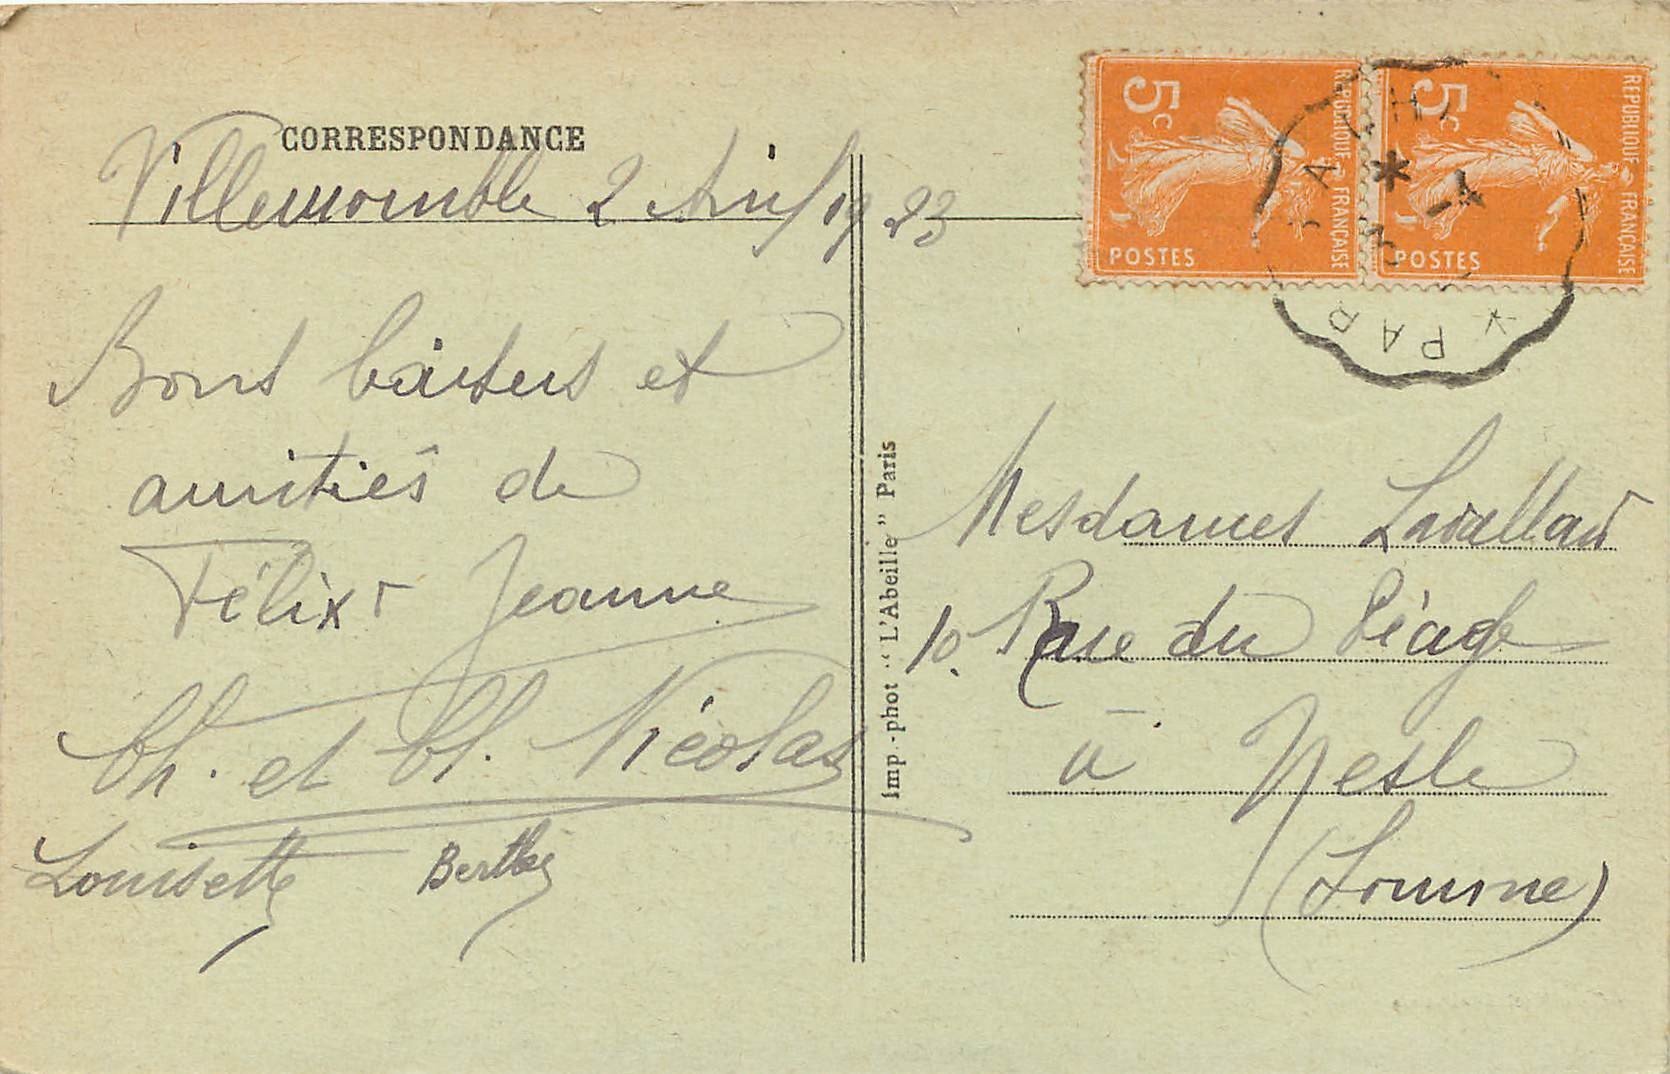 CORRESPONDANCE
Villemomble 2 Avril 1923
Bons baisers et
amitiés de
Félix Jeanne
Ch. et Bl. Nicolas
Louisette Berthe
Imp.-phot "L'Abeille" Paris
5c
REPUBLIQUE FRANÇAISE
POSTES
5c
REPUBLIQUE FRANÇAISE
POSTES
Mesdames Lavallard
10. Rue du Péage
à Nesle
(Somme)